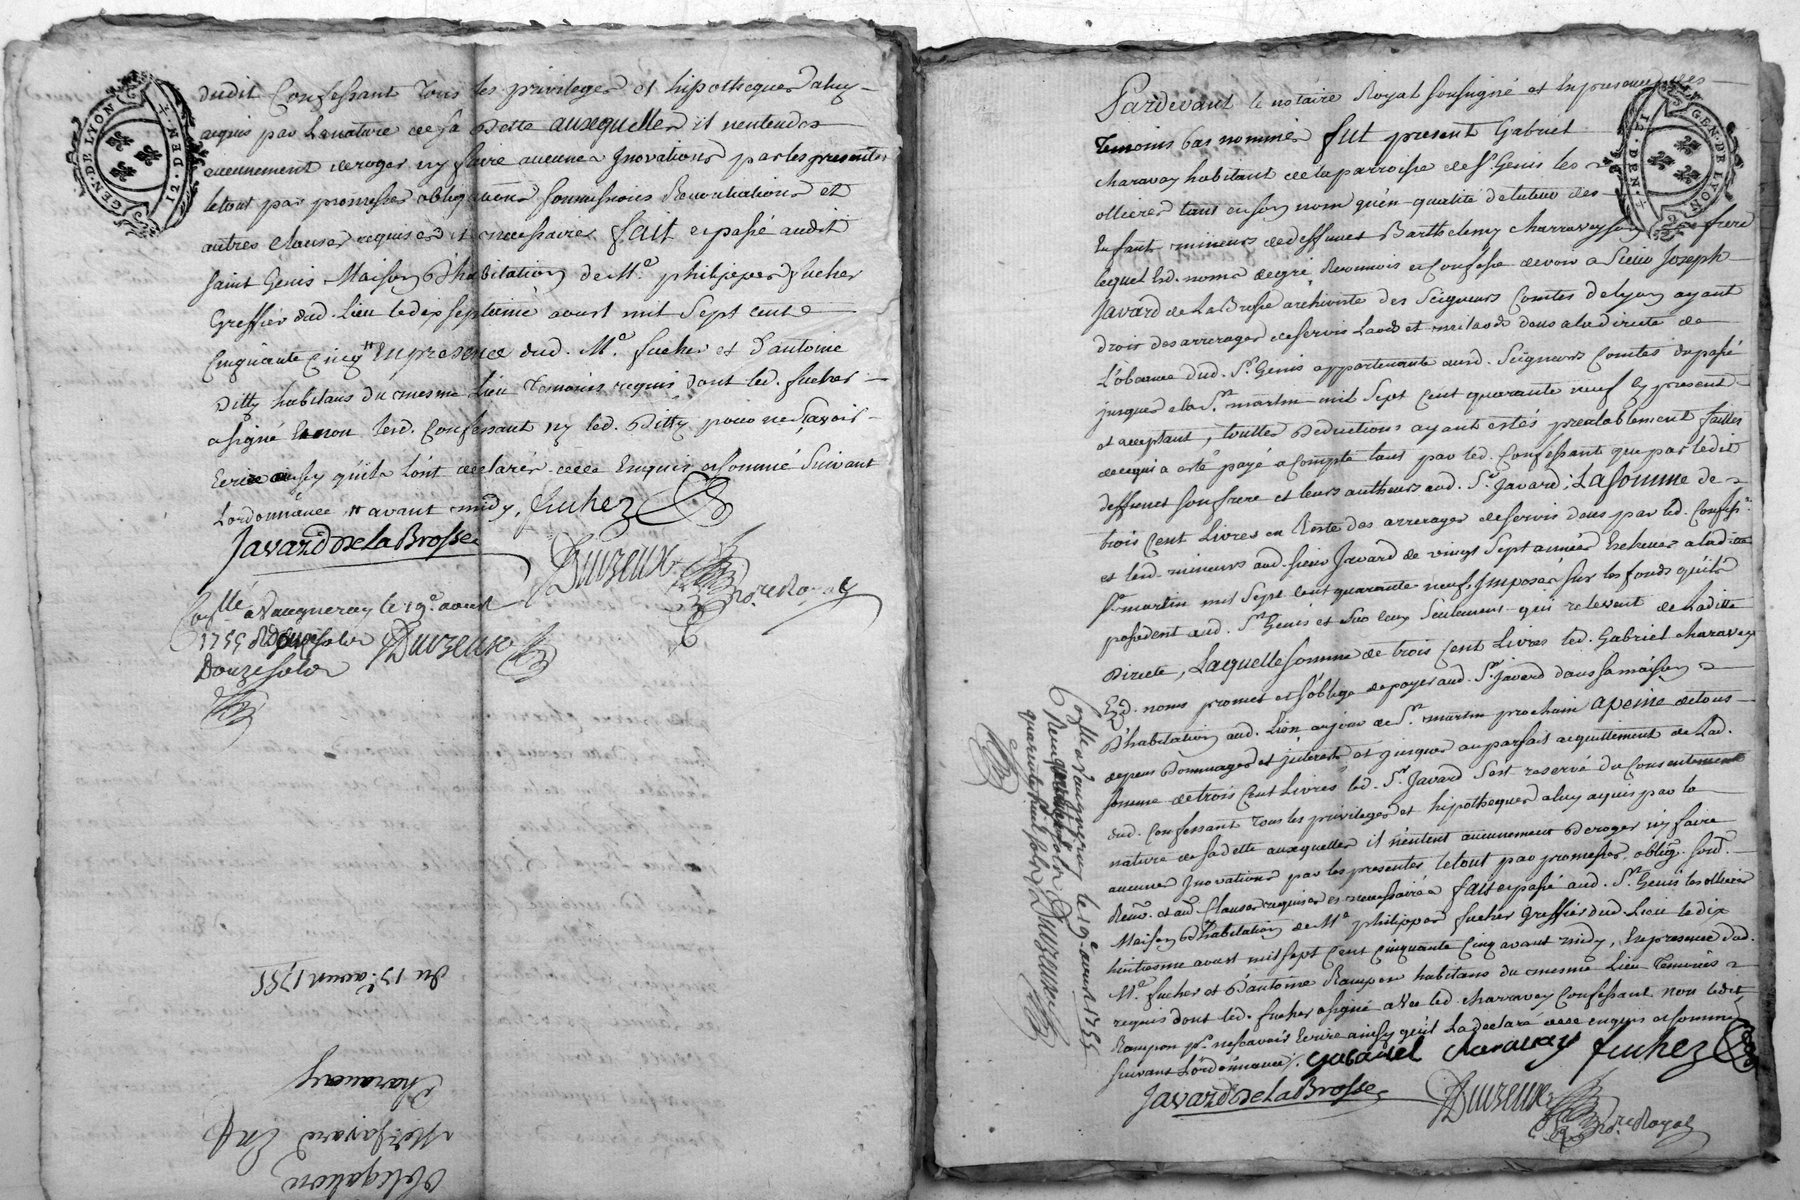 GEN. DE LYON
2 S. DEN. I
dudit Confessant Tous les privileges et hipotheques aluy
aquis par La nature de sa Dette auxquelles il nentends
aucunement deroger ny faire aucunes Inovations par les presentes
letout par promesses obligations soumissions Renontiations et
autres clauses requises et necessaires fait et passé audit
Saint Genis Maison D'habitation de Me. philippes fucher
Greffier dud. Lieu ledix septieme aoust mil Sept cent
Cinquante Cinq En presence dud. Me. fucher et D'antoine
Pitty habitans du mesme Lieu Temoins requis dont led. fucher
a signé Et non led. Confessant ny led. Pitty pour ne Scavoir
Ecrire ainsy quils L'ont declarés de ce Enquis et sommé Suivant
Lordonnance avant midy. fuchez
Javard De La Brosse
Duvzeux
Nore. Royal
Conllé a Vaugneray le 19e. aoust
1755 Reçu
Douze sols Duvzeux
du 17e. aoust 1755
Obligation
Mr. Javard
Charavay
Pardevant le notaire Royal soussigné et En presence des
Temoins bas nommés fut present Gabriel
charavay habitant de la parroisse de St. Genis les
ollieres tant en son nom qu'en qualité de tuteur des
Enfants mineurs de deffunct Barthelemy charravay son frere
lequel Esd. noms de gré Reconnois et Confesse devoir a Sieur Joseph
Javard de La Brosse archiviste des Seigneurs Comtes de Lyon ayant
droit des arrerages de servis Laods et milaods deus a la directe de
L'obeance dud. St. Genis appartenante ausd. Seigneurs Comtes du passé
jusques a la St. martin mil Sept Cent quarante neuf Cy present
et acceptant, touttes Deductions ayant estés prealablement faittes
de ce qui a esté payé a Compte tant par led. Confessant que par ledit
deffunct son frere et leurs autheurs aud. Sr. Javard; La somme de
trois Cent Livres en Reste des arrerages de servis deus par led. Confesst.
et lesd. mineurs aud. Sieur Javard de vingt Sept années Echeues a ladite
St. martin mil Sept Cent quarante neuf, Imposés sur les fonds qu'ils
possedent aud. St. Genis et sur eux seulement qui relevent de Laditte
Directe, Laquelle somme de trois Cent Livres led. Gabriel charavay
Esd. noms promet et s'oblige de payer aud. Sr. Javard dans sa maison
D'habitation aud. Lion au jour de St. martin prochain a peine de tous
depens Dommages et interests et jusques au parfait acquittement de Lad.
somme de trois Cent Livres led. Sr. Javard s'est reservé du Consentement
dud. Confessant tous les privileges et hipotheques aluy aquis par la
nature de sa dette auxquelles il n'entent aucunement Deroger ny faire
aucunes Inovations par les presentes letout par promesses, oblig. soum.
Renon. et au. Clauses requises et necessaires fait et passé aud. St. Genis les ollieres
Maison D'habitation de Me. philippes fucher greffier dud. Lieu le dix
huitiesme aoust mil sept Cent Cinquante Cinq avant midy, En presence dud.
Me. fucher et D'antoine Rampon habitans du mesme Lieu Temoins
requis dont led. fucher a signé avec led. charravay Confessant non ledit
Rampon pr. ne scavoir Ecrire ainsy qu'il La declaré de ce enquis et sommé
suivant L'ordonnance. gabriel charavay fuchez
Javard De la Brosse Duvzeux
Nore. Royal
Conllé a Vaugneray le 19e. aoust 1755
Reçu
quarante huit sols Duvzeux
GEN. DE LYON